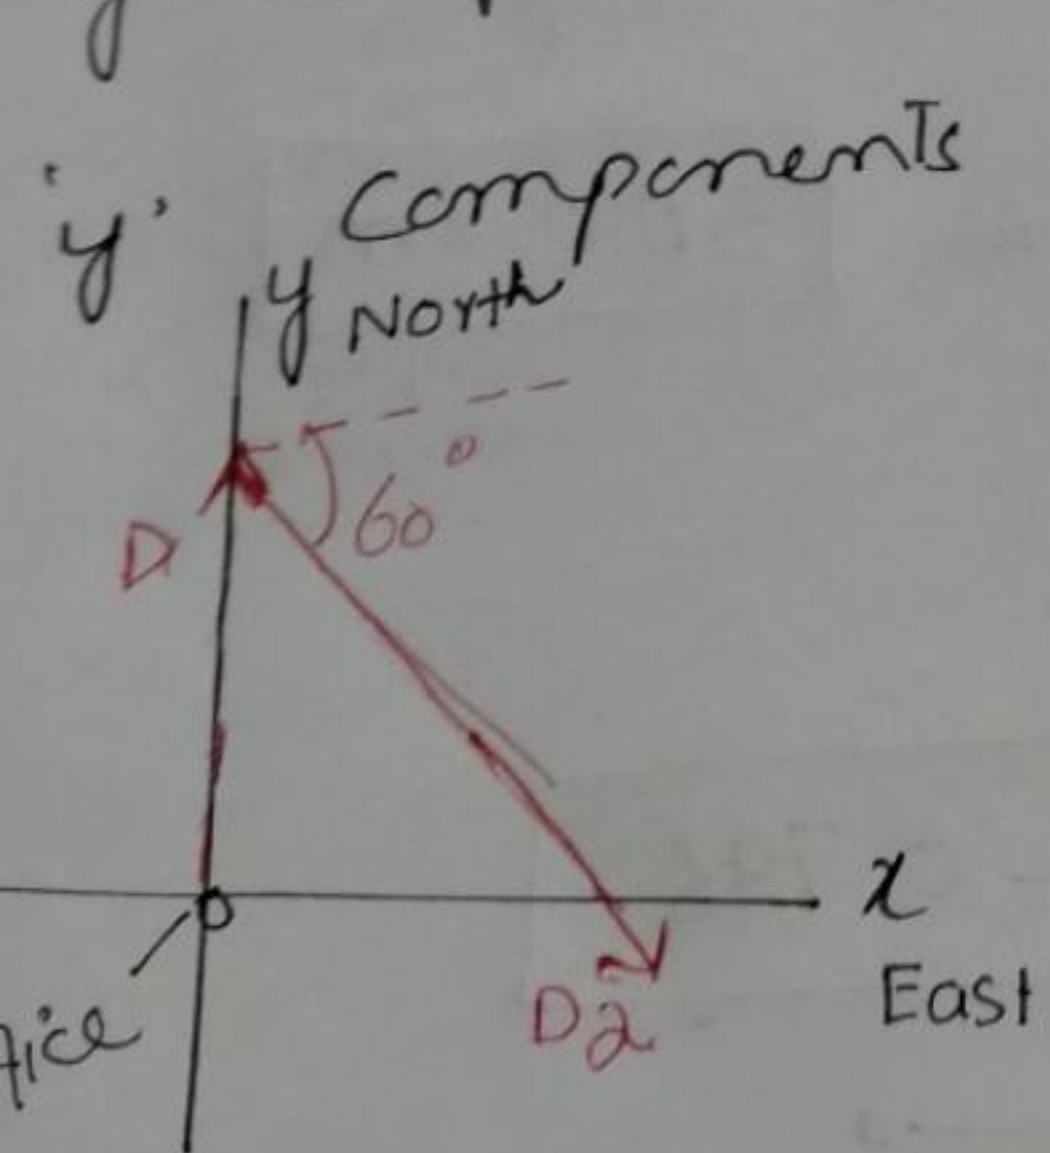 'y' Components
y North
60°
D
x
East
D2